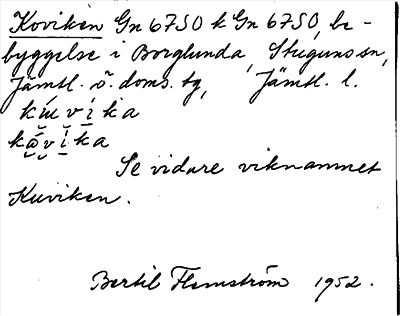 Koviken Gn 6750 k Gn 6750, be-
byggelse i Borglunda, Stuguns sn,
Jämtl. ö. doms. tg, Jämtl. l.
Se vidare viknamnet
Kuviken.
Bertil Flemström 1952.